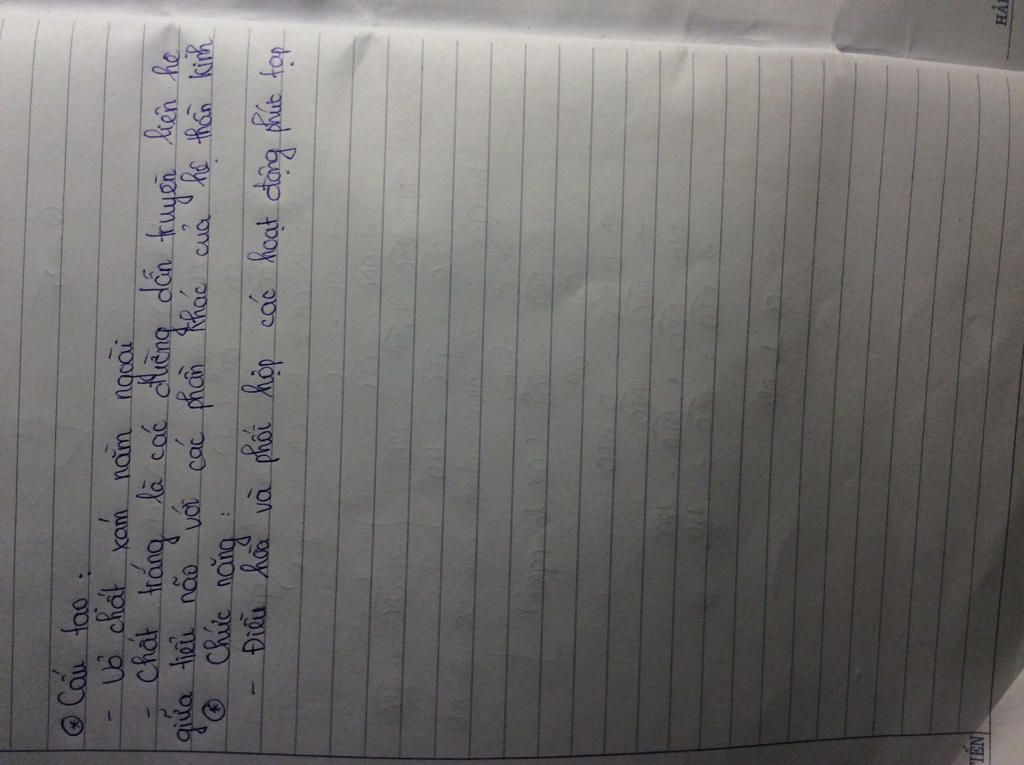 ⊛ Cấu tạo :
- Vỏ chất xám nằm ngoài
- Chất trắng là các đường dẫn truyền liên hệ
giữa tiểu não với các phần khác của hệ thần kinh
⊛ Chức năng :
- Điều hòa và phối hợp các hoạt động phức tạp
TIẾN
HẢI